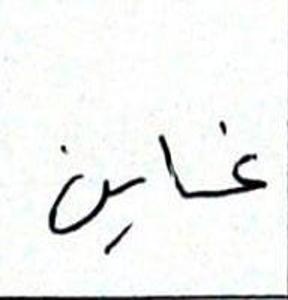 غساين